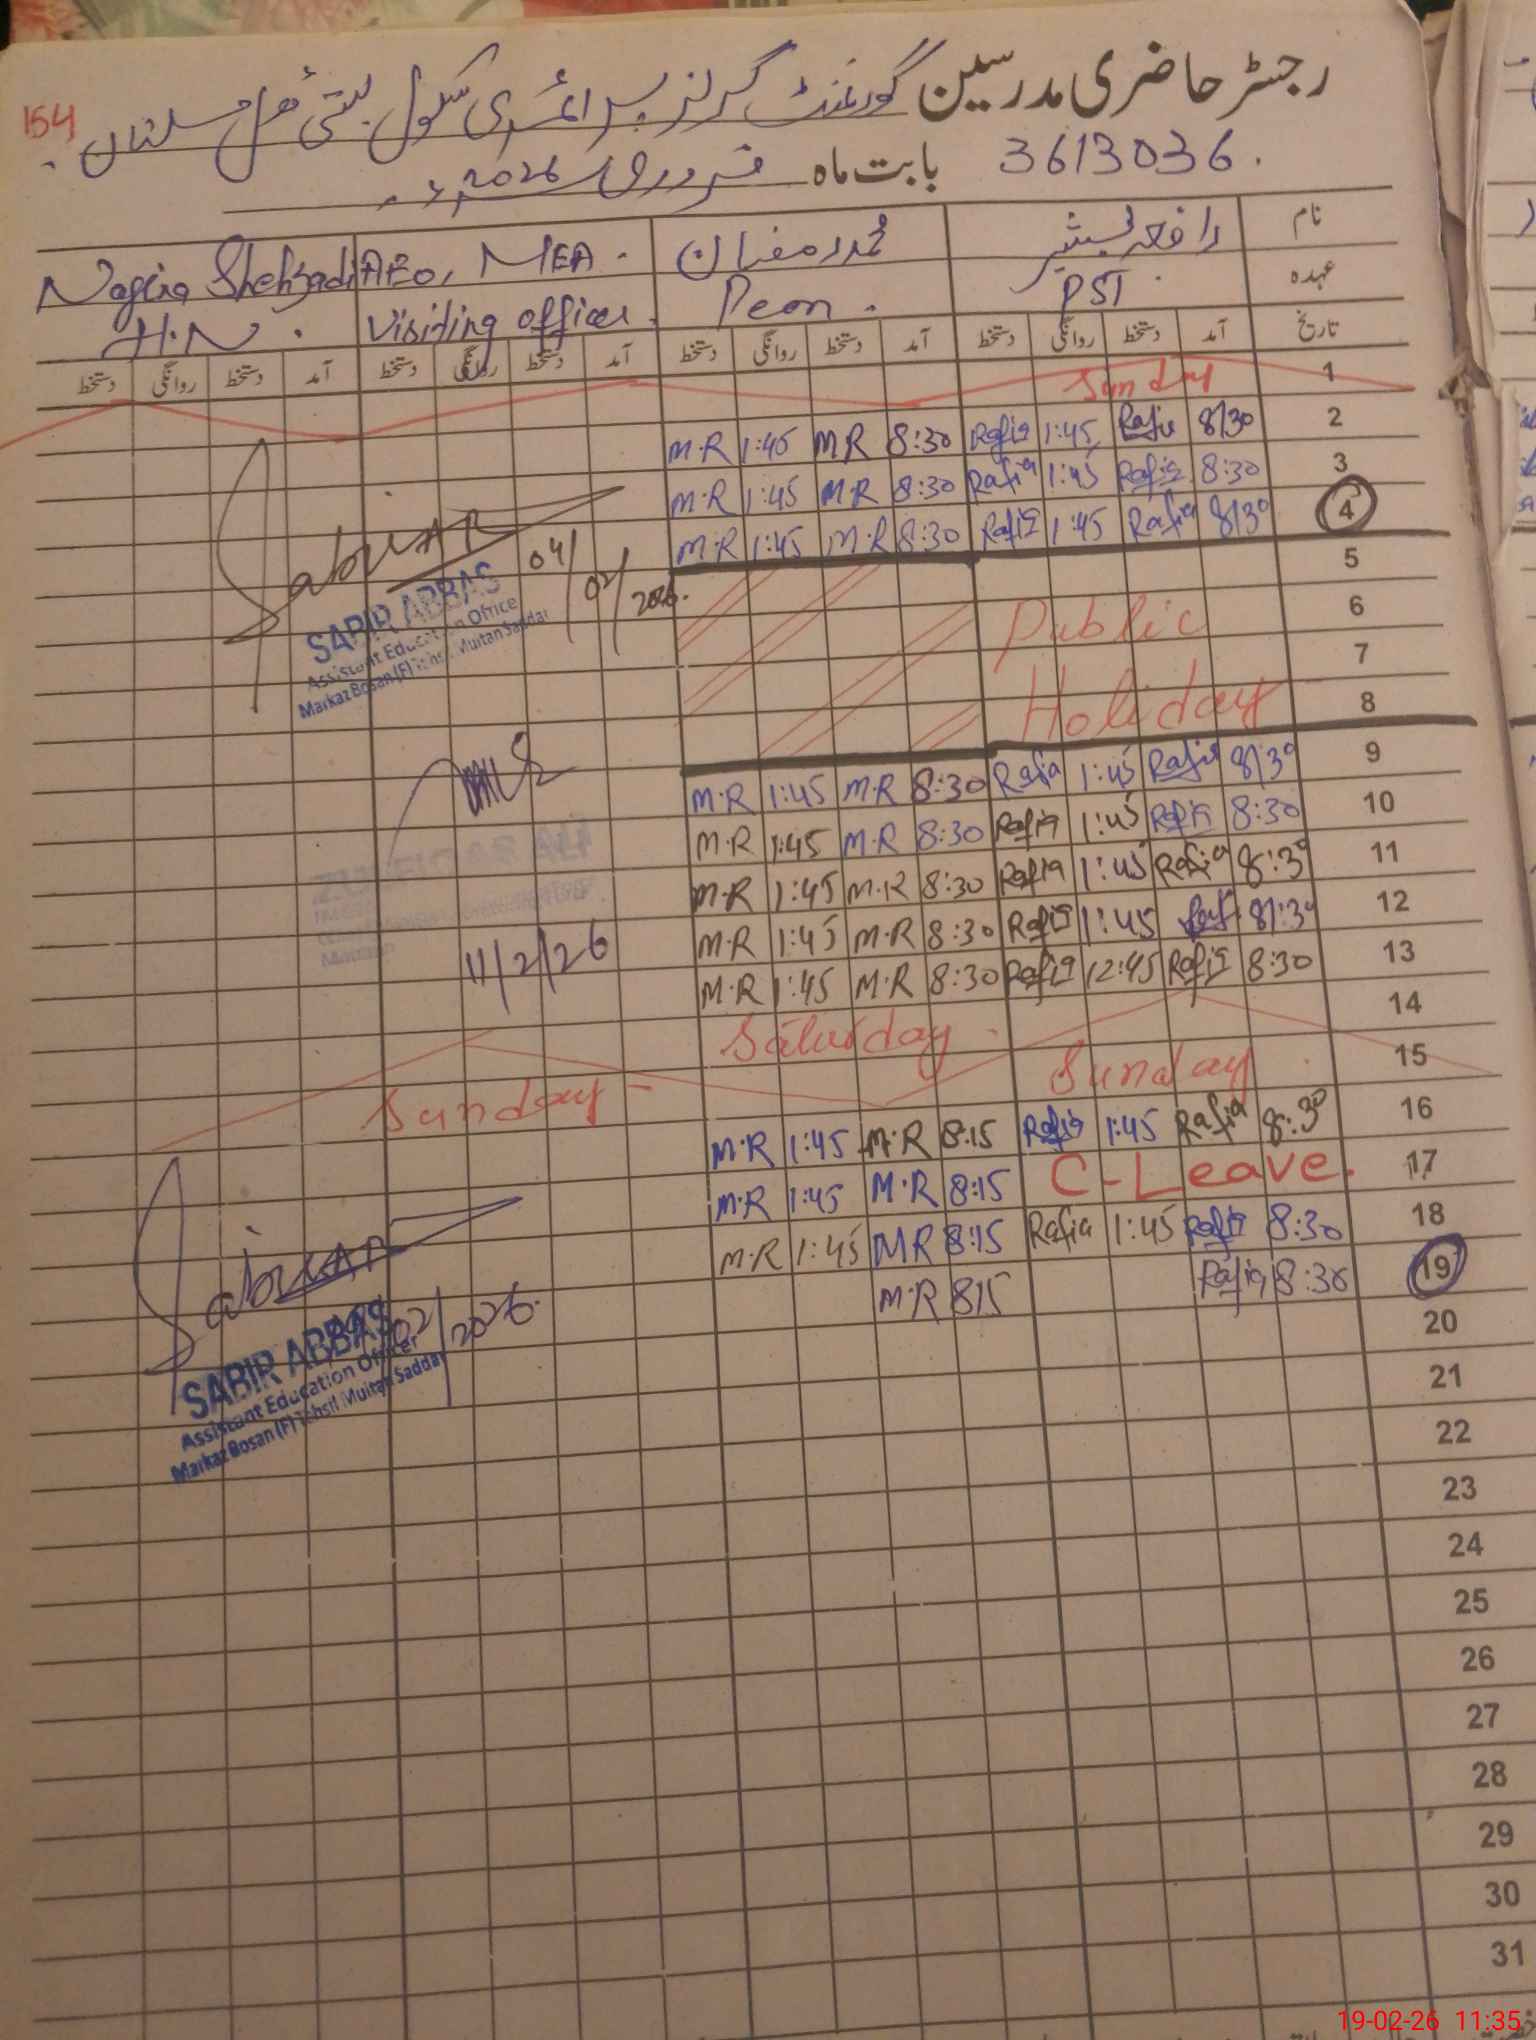 رجسٹر حاضری مدرسین گورنمنٹ گرلز پرائمری سکول بستی ملتان
154
بابت ماہ فروری 2026ء 3613036.
نام رافعہ بشیر محمد رمضان AEO, MEA. Nagina Shehzadi
عہدہ PST. Peon. Visiting officer. H.N.
تاریخ آمد دستخط روانگی دستخط آمد دستخط روانگی دستخط آمد دستخط روانگی دستخط آمد دستخط روانگی دستخط
1 Sunday
2 8:30 Rafia 1:45 Rafia 8:30 M.R 1:45 M.R
3 8:30 Rafia 1:45 Rafia 8:30 M.R 1:45 M.R
4 8:30 Rafia 1:45 Rafia 8:30 M.R 1:45 M.R
04/02/2026.
SABIR ABBAS
Assistant Education Officer
Markaz Bosan (F) Tehsil Multan Saddar
5
6 Public
7
8 Holiday
9 8:30 Rafia 1:45 Rafia 8:30 M.R 1:45 M.R
10 8:30 Rafia 1:45 Rafia 8:30 M.R 1:45 M.R
11 8:30 Rafia 1:45 Rafia 8:30 M.R 1:45 M.R
12 8:30 Rafia 1:45 Rafia 8:30 M.R 1:45 M.R
11/2/26
13 8:30 Rafia 12:45 Rafia 8:30 M.R 1:45 M.R
14 Saturday.
15 Sunday. Sunday-
16 8:30 Rafia 1:45 Rafia 8:15 M.R 1:45 M.R
17 C-Leave. 8:15 M.R 1:45 M.R
18 8:30 Rafia 1:45 Rafia 8:15 M.R 1:45 M.R
19 8:30 Rafia 815 M.R
02/2026.
SABIR ABBAS
Assistant Education Officer
Markaz Bosan (F) Tehsil Multan Saddar
20
21
22
23
24
25
26
27
28
29
30
31
19-02-26 11:35